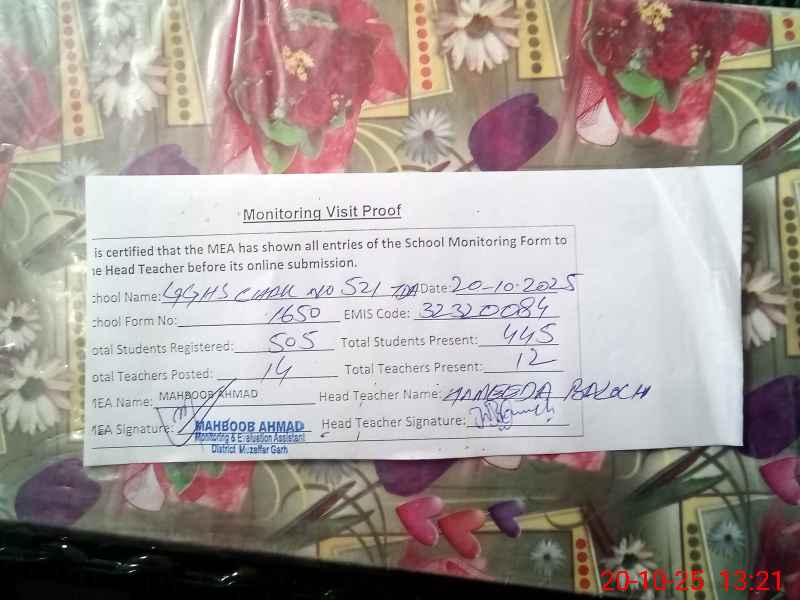 Monitoring Visit Proof
is certified that the MEA has shown all entries of the School Monitoring Form to
he Head Teacher before its online submission.
chool Name: GGHS CHAK NO 521 TDA Date: 20-10-2025
chool Form No: 1650 EMIS Code: 32320084
otal Students Registered: 505 Total Students Present: 445
otal Teachers Posted: 14 Total Teachers Present: 12
MEA Name: MAHBOOB AHMAD Head Teacher Name: HAMEEDA BALOCH
MEA Signature: Head Teacher Signature:
MAHBOOB AHMAD
Monitoring & Evaluation Assistant
District Muzaffar Garh
20-10-25 13:21